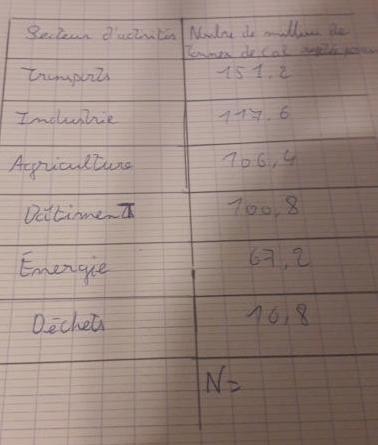 Secteur d'activités Nombre de millions de
tonnes de Co2
Transports 151,2
Industrie 117,6
Agriculture 106,4
Bâtiment 100,8
Énergie 67,2
Déchets 16,8
N=